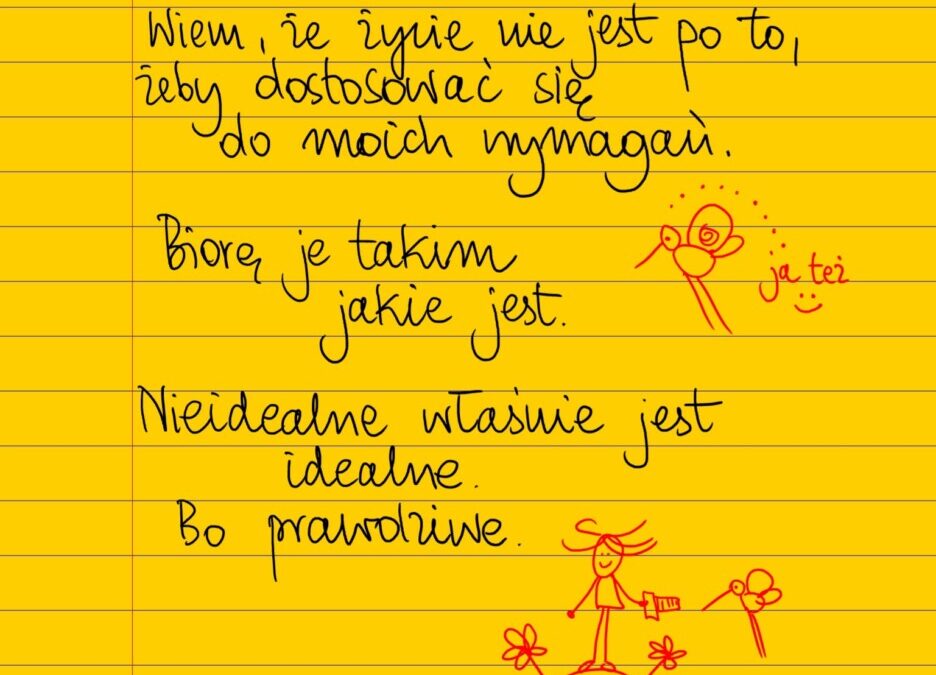 Wiem, że życie nie jest po to,
żeby dostosować się
do moich wymagań.
Biorę je takim
jakie jest.
ja też
Nieidealne właśnie jest
idealne.
Bo prawdziwe.